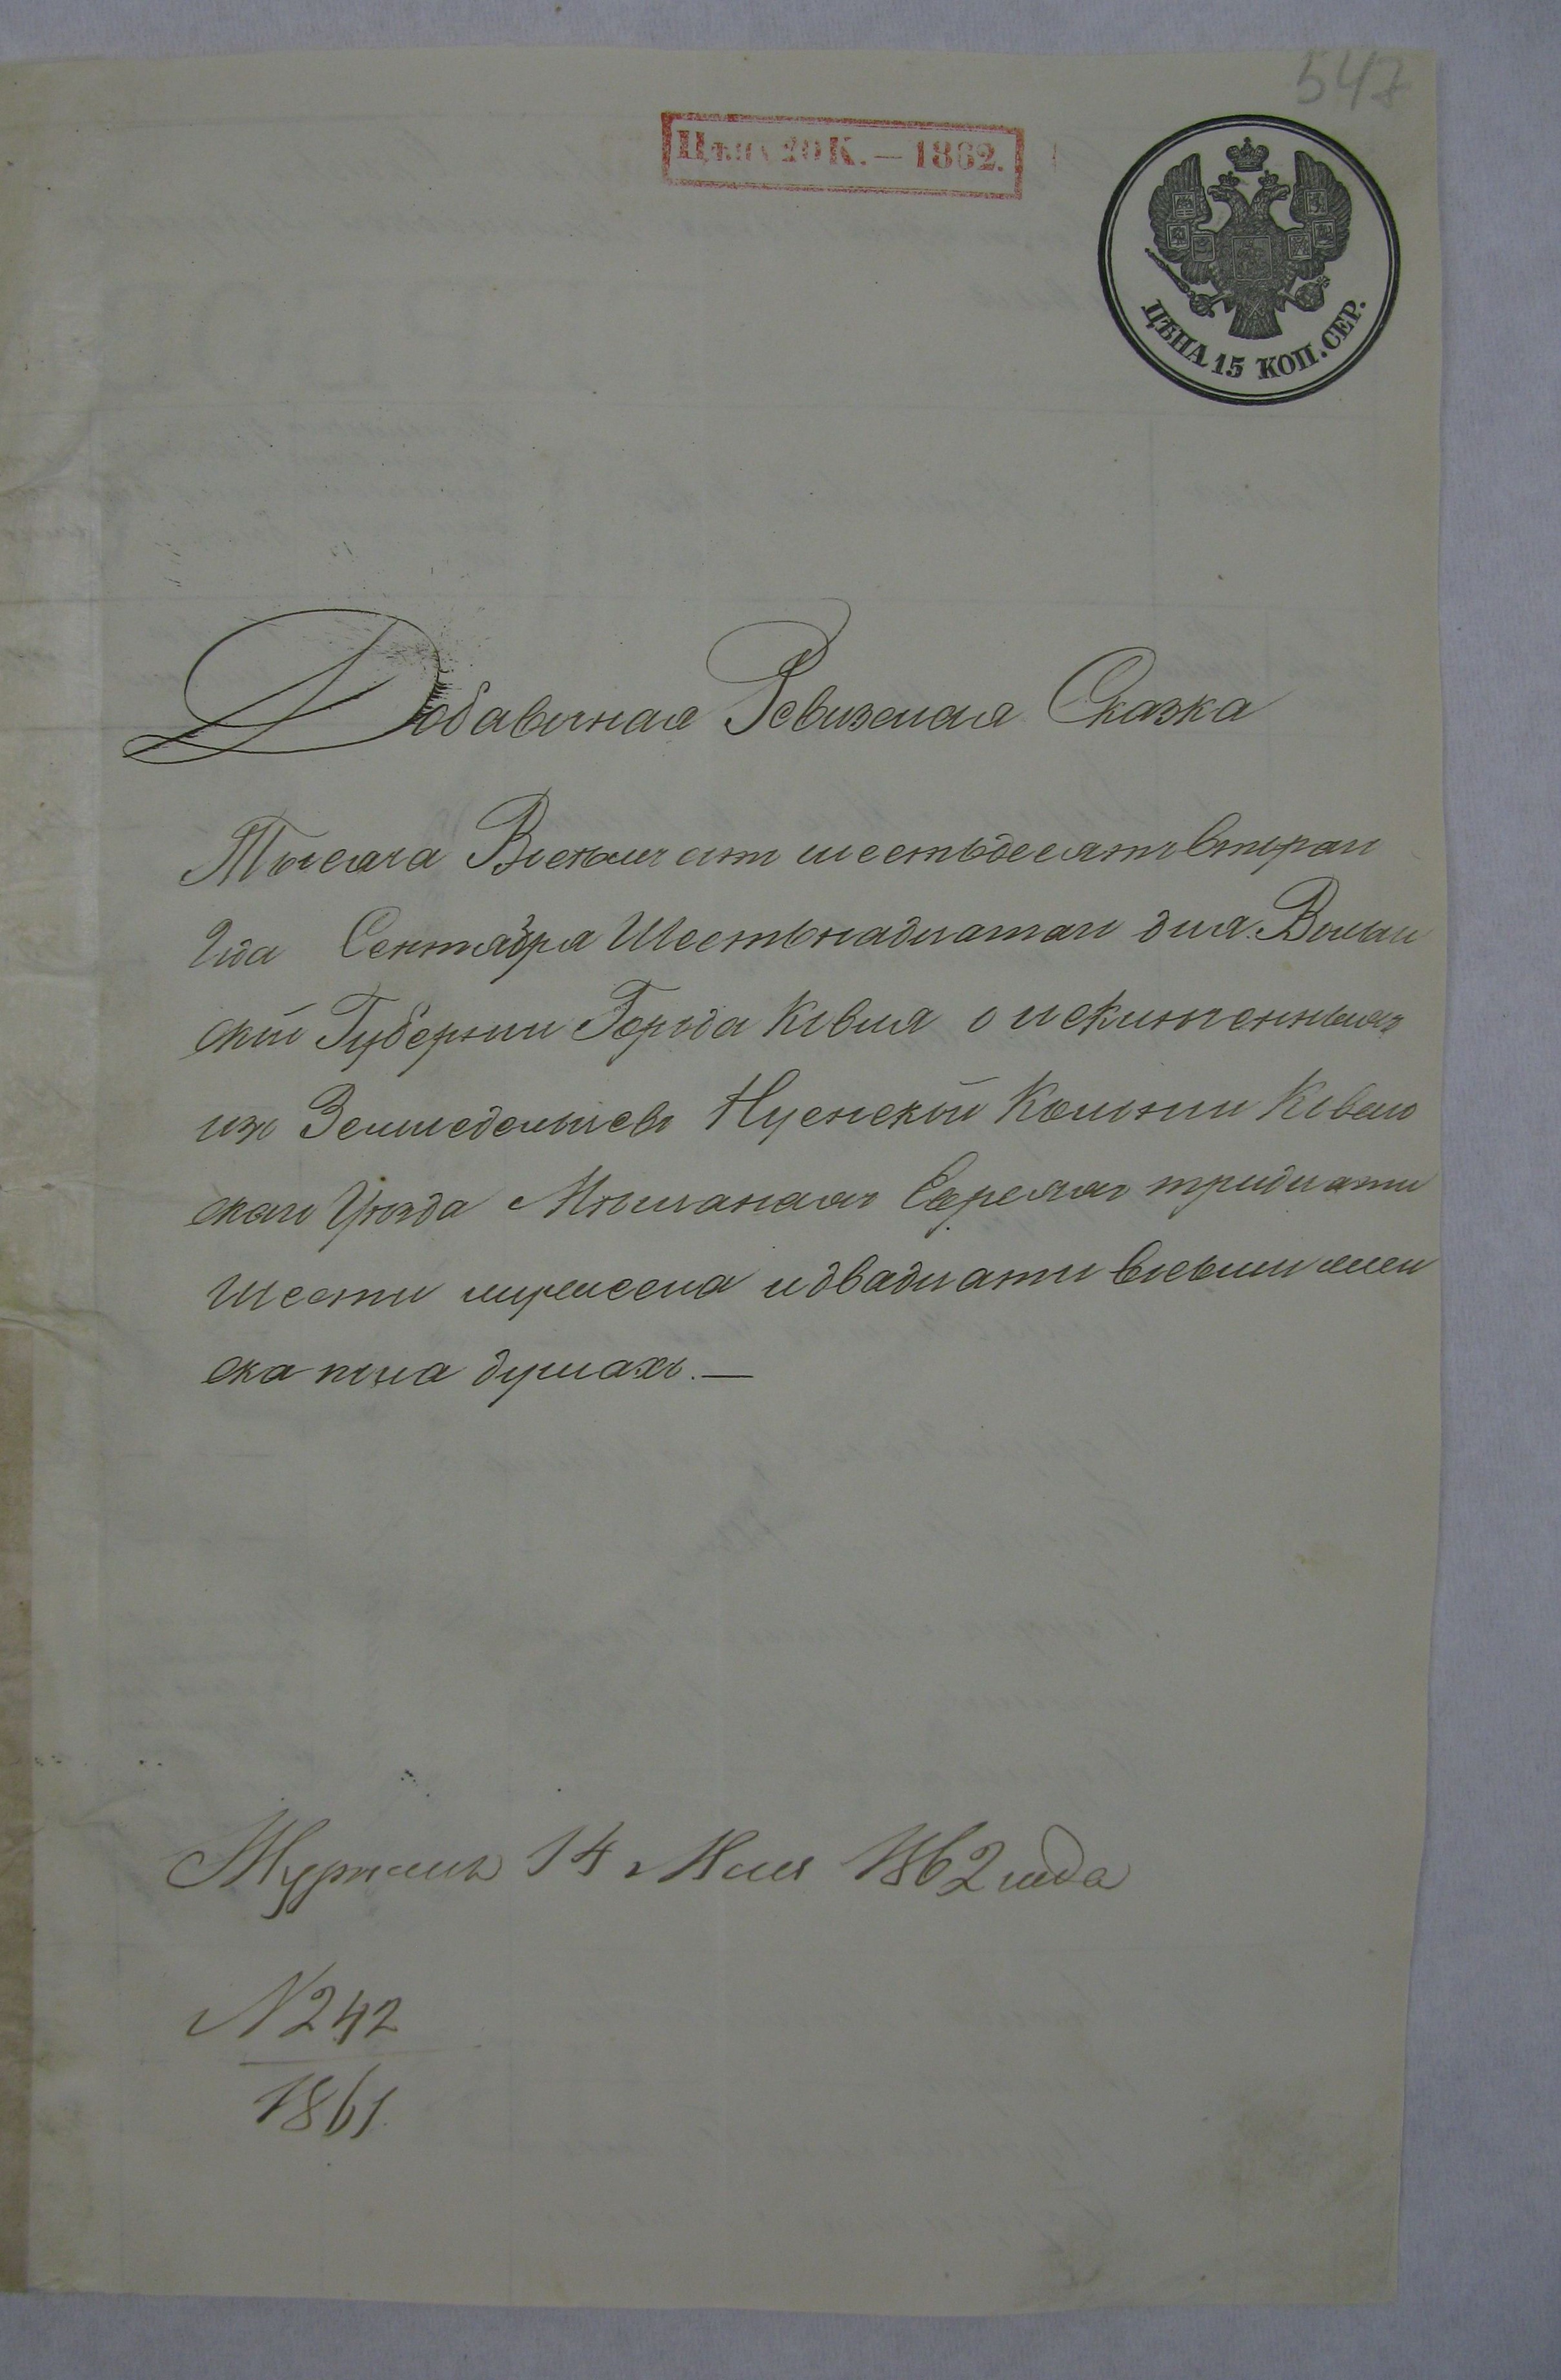 547
Цѣна 20 К. — 1862.
ЦѢНА 15 КОП. СЕР.
Добавочная Ревизская Сказка
Тысяча Восемьсот шестьдесятъ втораго
Года Сентября Шестьнадцатаго дня. Волын
ской Губерніи Города Ковля о исключенныхъ
изъ Земледельцевъ Нусенской Колоніи Ковель
скаго Уѣзда Мѣщанахъ Евреяхъ тридцати
шести мужеска и двадцати восьми жен
ска пола душахъ. —
14 Мая 1862 года
N 242
1861